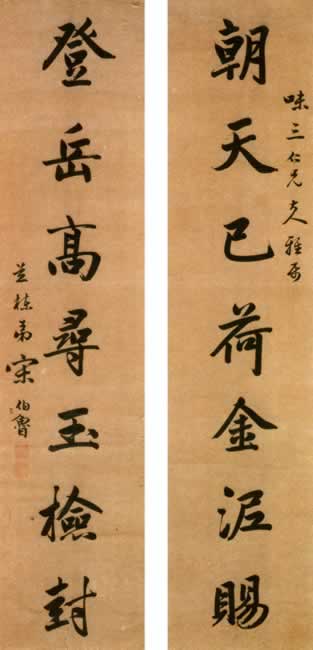 味三仁兄大人雅属
朝天已荷金泥賜
登岳高尋玉檢封
芝棟弟宋伯魯